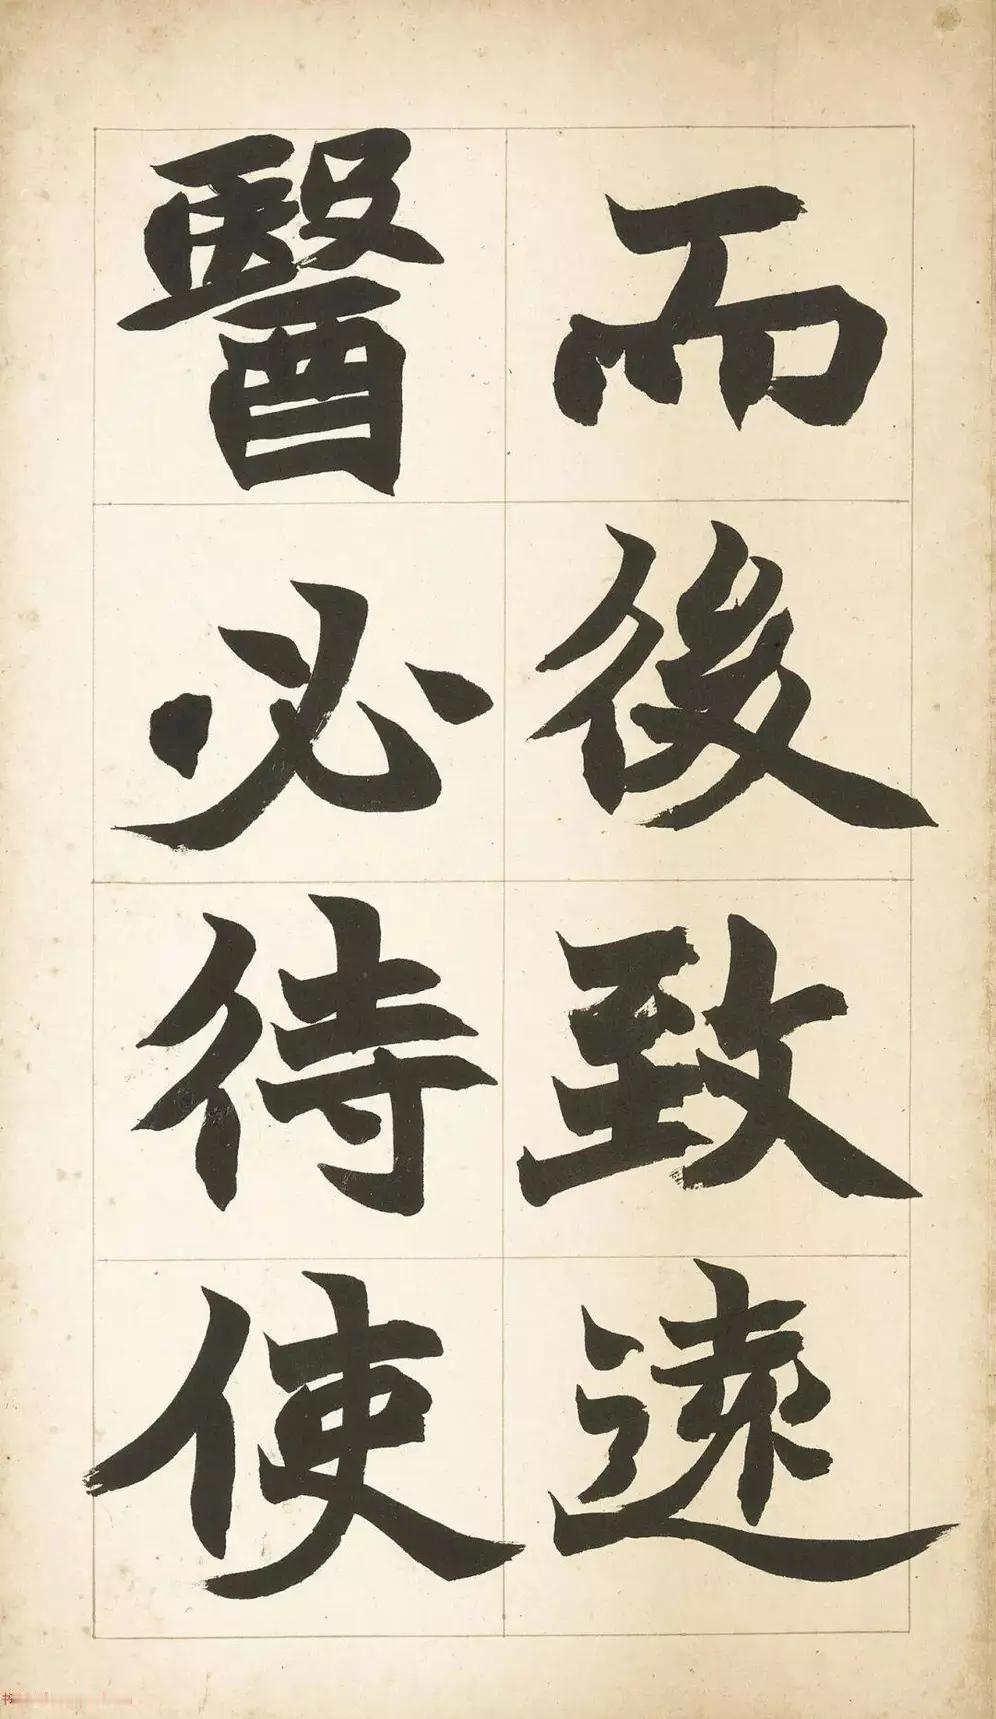 而後致遠
醫必待使
书